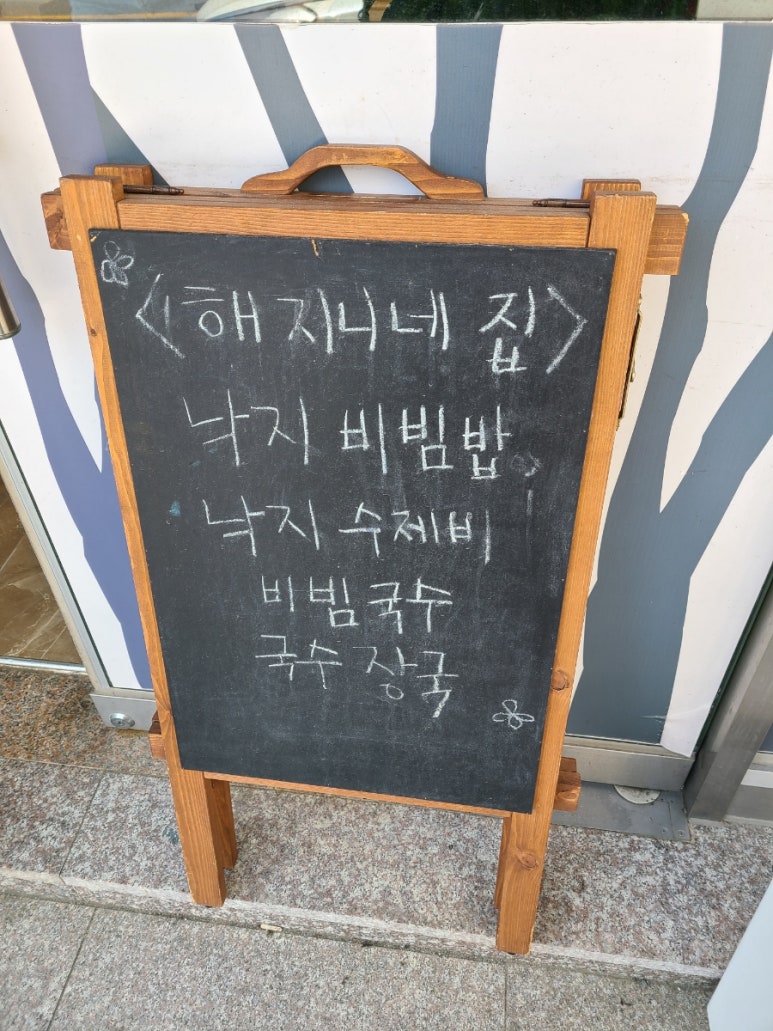 <해 지니네 집>
낙지 비빔밥
낙지 수제비
비빔국수
국수 장국